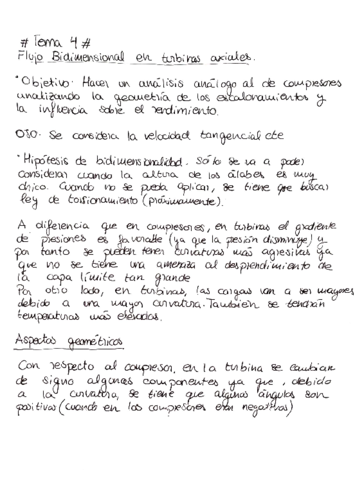 # Tema 4 #
Flujo Bidimensional en turbinas axiales.
* Objetivo: Hacer un análisis análogo al de compresores
analizando la geometría de los escalonamientos y
la influencia sobre el rendimiento.
OJO: Se considera la velocidad tangencial cte
* Hipótesis de bidimensionalidad. Sólo se va a poder
considerar cuando la altura de los álabes es muy
chico. Cuando no se pueda aplicar, se tiene que buscar
ley de torsionamiento (próximamente).
A diferencia que en compresores, en turbinas el gradiente
de presiones es favorable (ya que la presión disminuye) y
por tanto se pueden tener curvaturas más agresivas ya
que no se tiene una amenaza al desprendimiento de
la capa límite tan grande
Por otro lado, en turbinas, las cargas van a ser mayores
debido a una mayor curvatura. También se tendrán
temperaturas más elevadas.
Aspectos geométricos
Con respecto al compresor, en la turbina se cambian
de signo algunas componentes ya que, debido
a la curvatura, se tiene que algunos ángulos son
positivos (cuando en los compresores eran negativos)